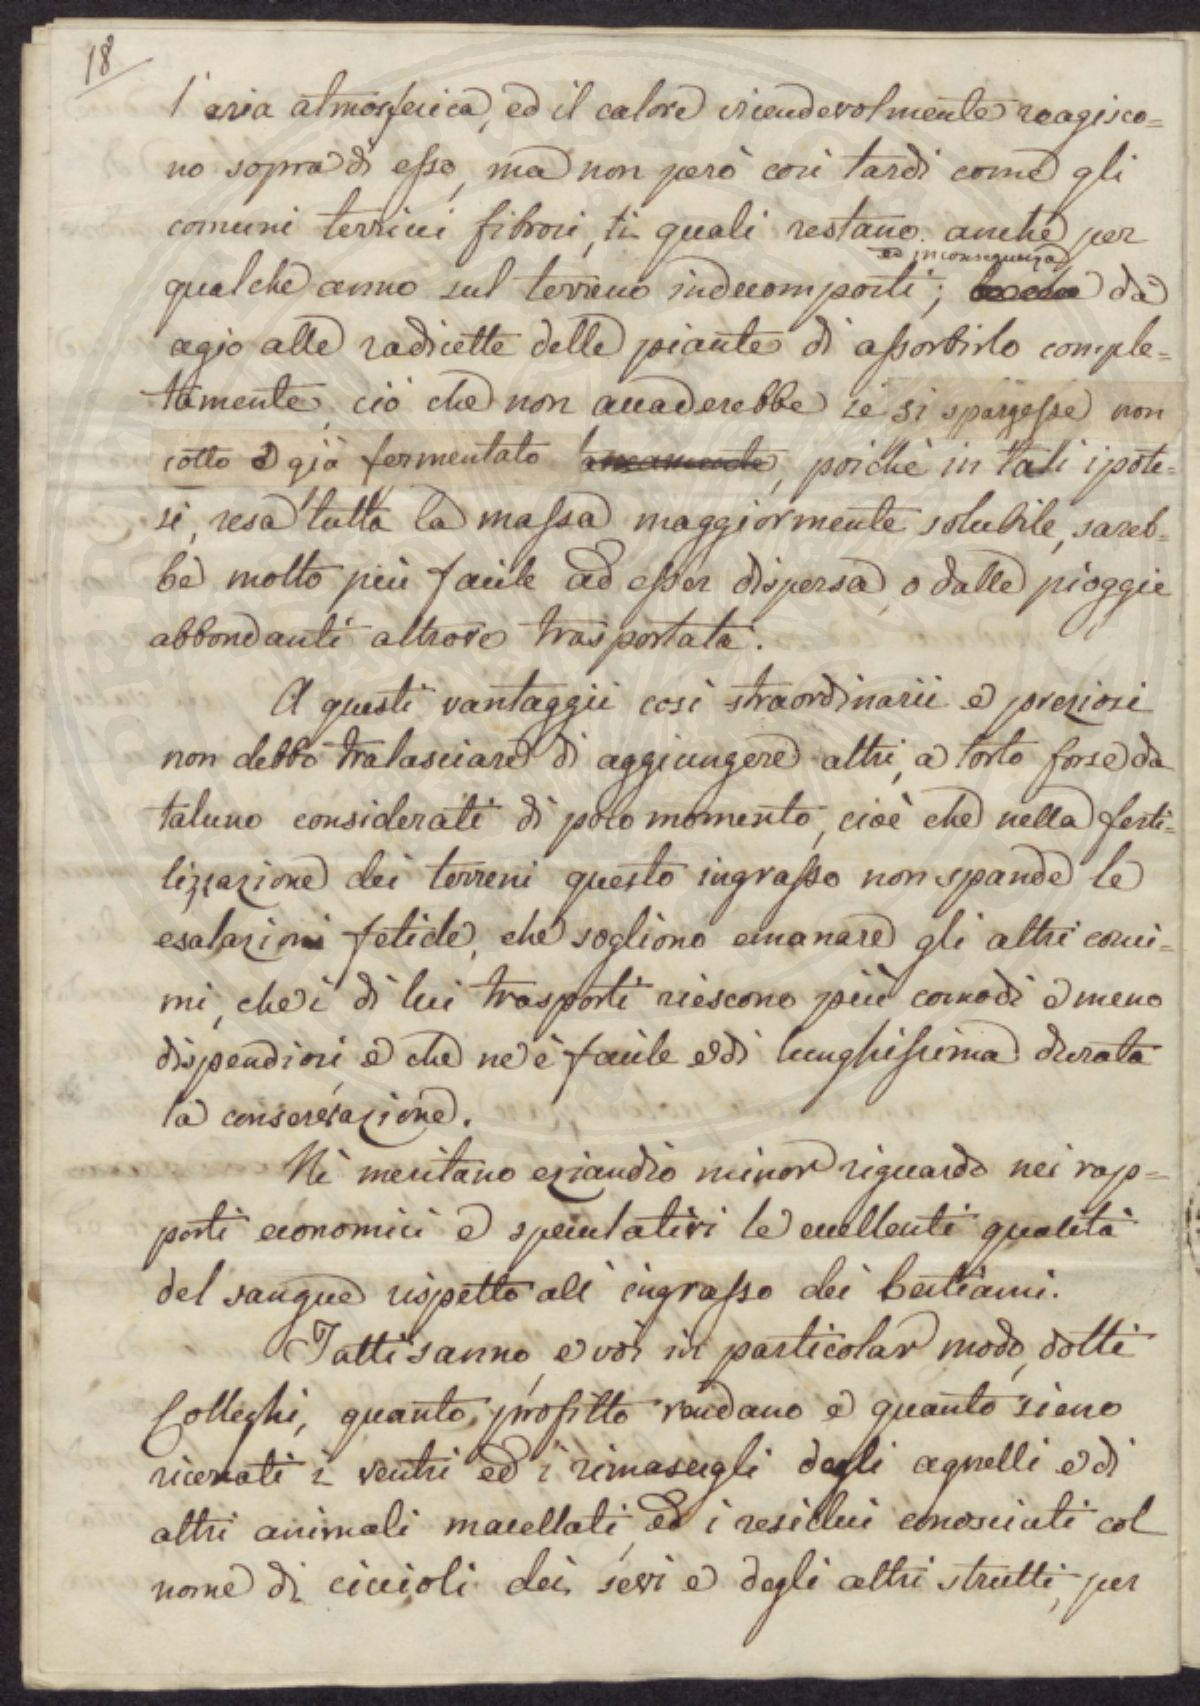 18
l'aria atmosferica, ed il calore vicendevolmente reagisco=
no sopra di esso, ma non però così tardi come gli
comuni terricci fibrosi, li quali restano anche per
ed in conseguenza
qualche anno sul terreno indecomposti; dà
agio alle radicette delle piante di assorbirlo comple=
tamente, ciò che non accaderebbe se si spargesse non
cotto e già fermentato, poichè in tali ipote=
si, resa tutta la massa maggiormente solubile, sareb=
be molto più facile ad esser dispersa, o dalle pioggie
abbondanti altrove trasportata.
A questi vantaggii così straordinarii e preziosi
non debbo tralasciare di aggiungere altri, a torto forse da
taluno considerati di poco momento, cioè che nella ferti=
lizzazione dei terreni questo ingrasso non spande le
esalazioni fetide, che sogliono emanare gli altri conci=
mi, che i di lui trasporti riescono più comodi e meno
dispendiosi e che ne è facile e di lunghissima durata
la conservazione.
Nè meritano eziandio minor riguardo nei rap=
porti economici e speculativi le eccellenti qualità
del sangue rispetto all'ingrasso dei bestiami.
Tutti sanno, e voi in particolar modo, dotti
Colleghi, quanto profitto rendano e quanto sieno
ricercati i ventri ed i rimasugli degli agnelli e di
altri animali macellati, ed i residui conosciuti col
nome di ciccioli dei sevi e degli altri strutti, per